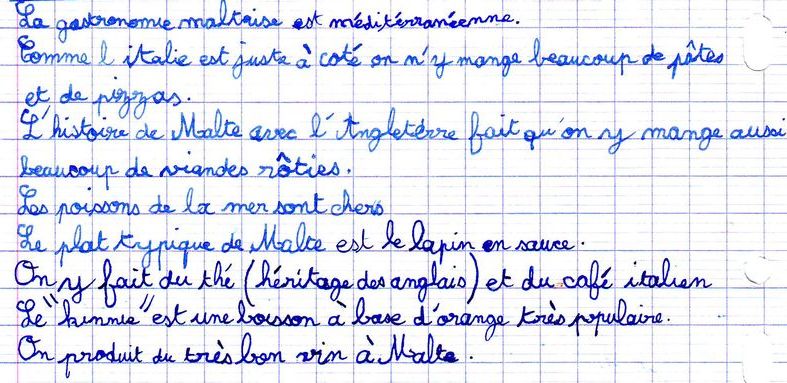 La gastronomie maltaise est méditérranéenne.
Comme l italie est juste à coté on n'y mange beaucoup de pâtes
et de pizzas.
L'histoire de Malte avec l'Angletérre fait qu'on y mange aussi
beaucoup de viandes rôties.
Les poissons de la mer sont chers
Le plat typique de Malte est le lapin en sauce.
On y fait du thé (héritage des anglais) et du café italien
Le "kinnie" est une boisson à base d'orange très populaire.
On produit du très bon vin à Malte.